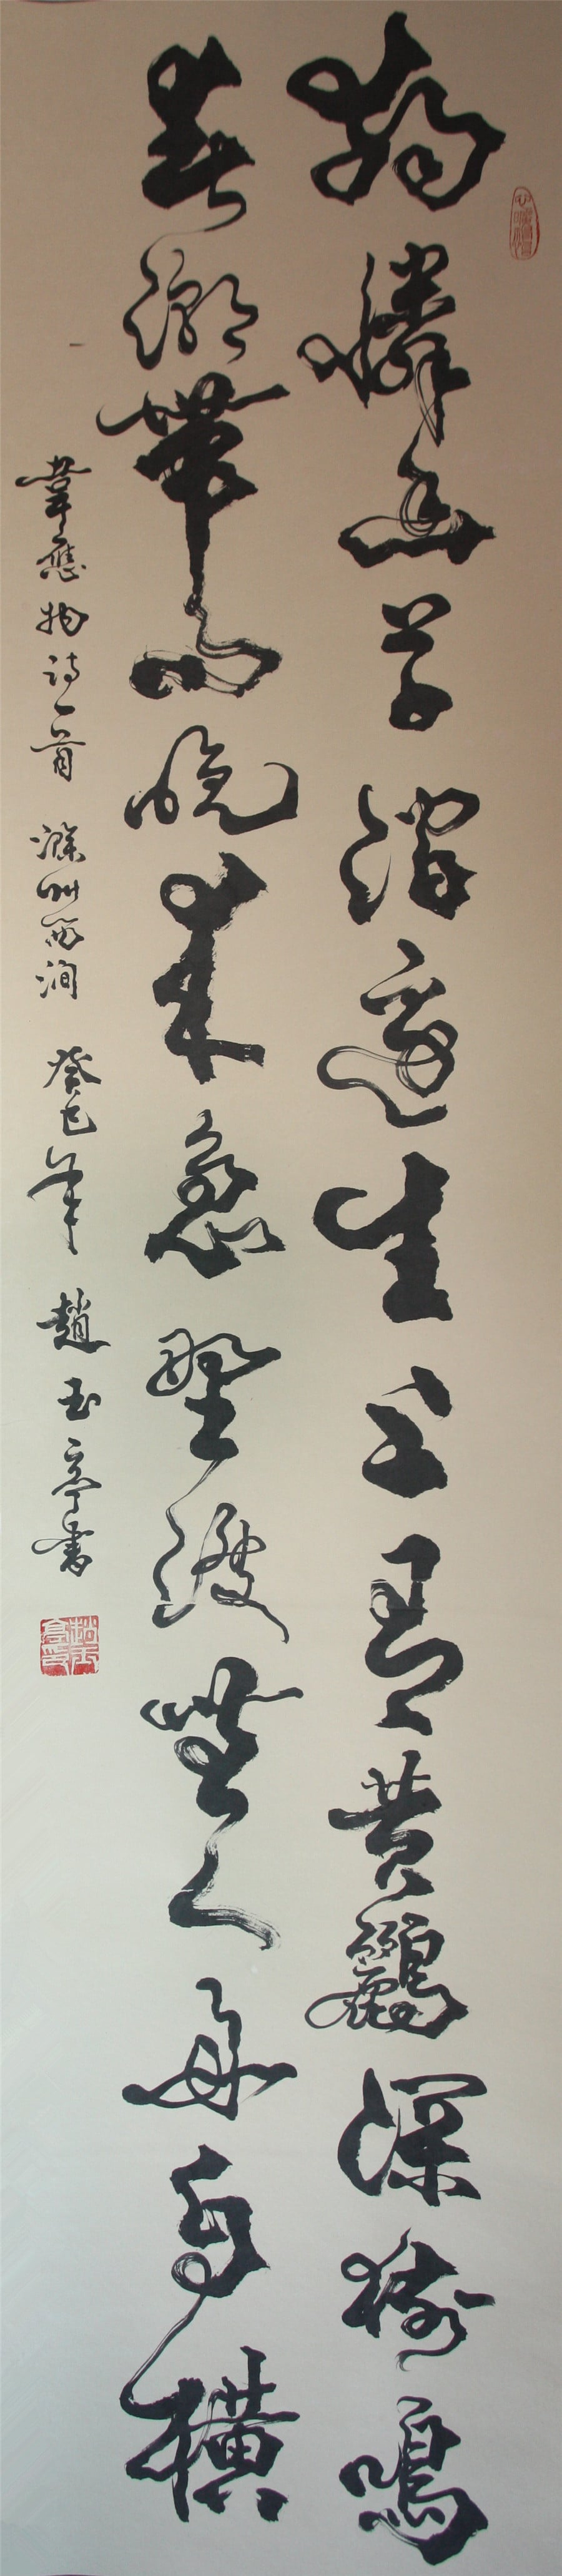 獨憐幽草澗邊生上有黃鸝深樹鳴
春潮帶雨晚來急野渡無人舟自橫
韋應物詩一首 滁州西澗 癸巳年 趙玉亭書